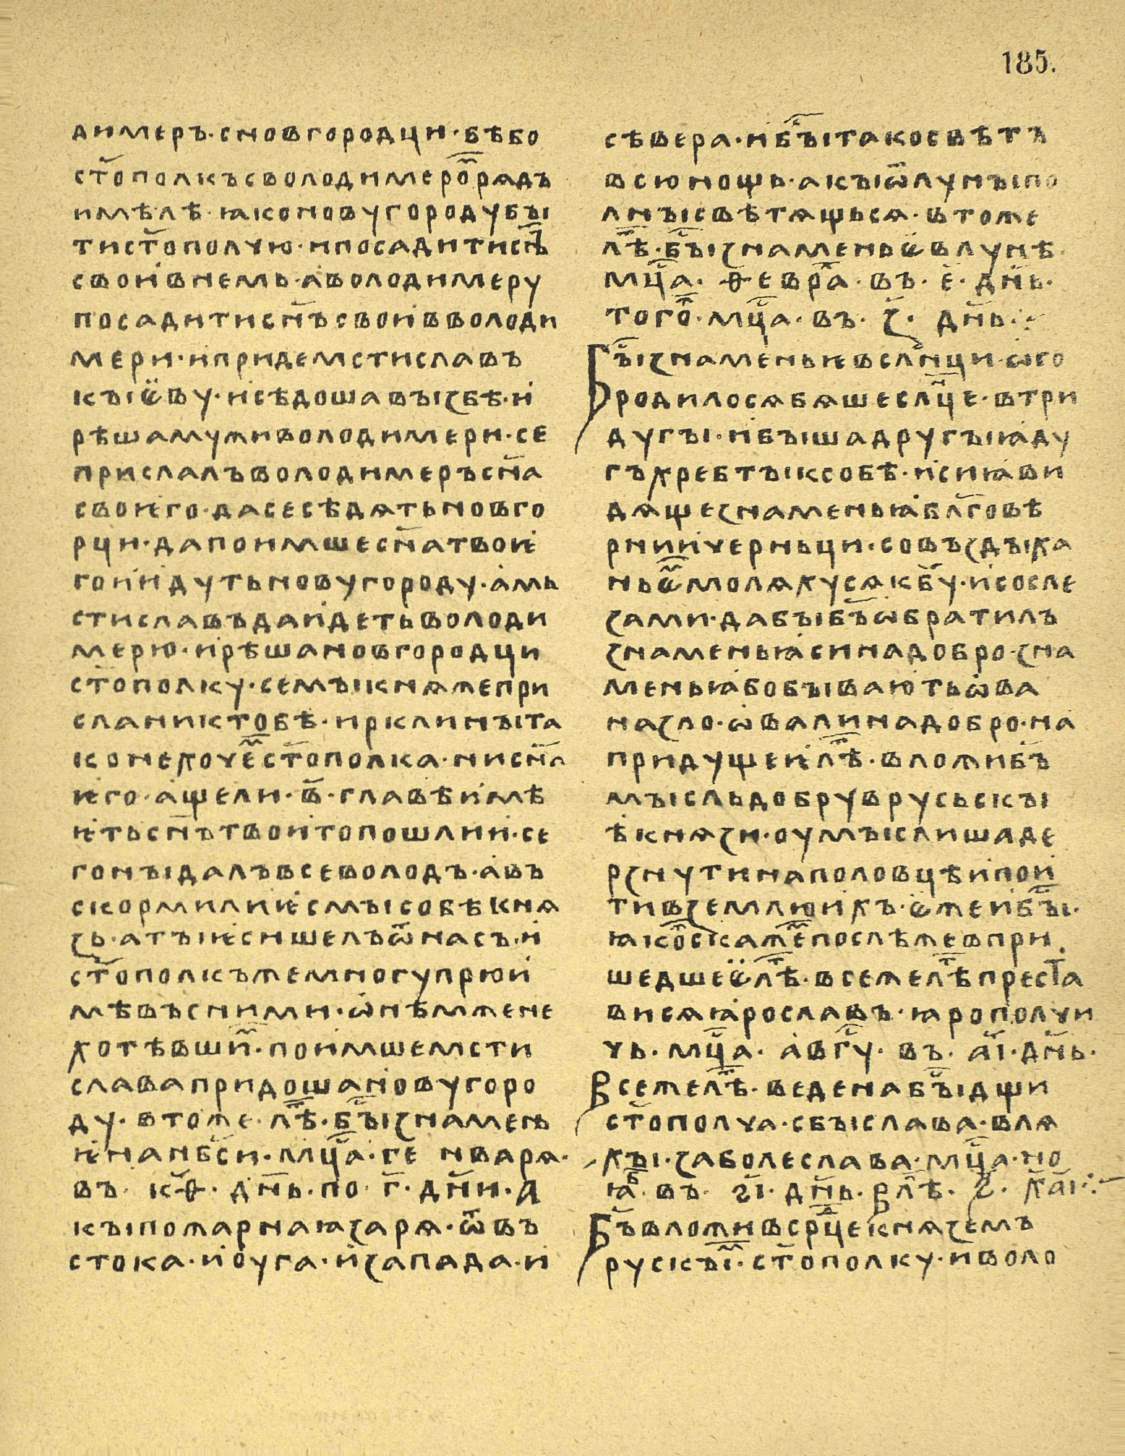 185.
димеръ·сновгородци·бѣбо
ст҃ополкъсволодимеромⷬ҇рядъ
имѣлѣ·ꙗконовугородубꙑ
тист҃ополчю·ипосадитисн҃ъ
своивнемь·аволодимеру
посадитисн҃ъсвоивволоди
мери·ипридемстиславъ
кꙑѥву·исѣдошавъꙇзбѣ·и
рѣшамуживолодимери·се
прислалъволодимеръсн҃а
своѥго·дасесѣдятьновго
рци·дапоимшесн҃атвоѥ
гоиидутьновугороду·амь
стиславъдаидетьволоди
мерю·ирѣшановгородци
ст҃ополку·семꙑкнѧжепри
сланиктобѣ·иркли нꙑта
конехочемъст҃ополка·нисн҃а
ѥго·ащели·в҃·главѣимѣ
ѥтьсн҃ътвоитопошлии·се
гонꙑдалъвсеволодъ·авъ
скормилиѥсмꙑсобѣкнѧ
зь·атꙑѥсишелъѿнасъ·и
ст҃ополкъжемногупрюи
мѣвъсними·ѡнѣмжене
хотѣвшимъ·поимшемсти
славапридошановугоро
ду·втоже·лѣⷮ·бъꙇⷭзнамень
ѥнанб҃си·мц҃а·генваря·
въ·к҃ѳ·дн҃ь·по·г҃·дн҃и·а҃
кꙑпожарнаꙗзаря·ѿвъ
стока·иоуга·изапада·и
сѣвера·ибъꙇⷭтакосвѣтъ
всюнощь·акꙑѿлунꙑпо
лнꙑсвѣтящься·втоже
лѣⷮ·бъꙇⷭзнаменьѥвлунѣ·
мц҃а·ѳевраⷧ·въ·е҃·дн҃ь·
тогоⷤ·мц҃а·въ·з҃·дн҃ь·
Бъꙇⷭзнаменьѥвслн҃ци·ѡго
родилосябяшеслн҃це·втри
дугꙑ·ибꙑшадругꙑꙗду
гꙑхребтꙑксобѣ·исиꙗви
дящезнаменьꙗбл҃говѣ
рниичерньци·совъздꙑха
ньѥмъмоляхусякб҃у·исосле
зами·дабꙑб҃ъѡбратилъ
знаменьꙗсинадобро·зна
меньꙗбобꙑваютьѡва
назло·ѡвалинадобро·на
придущеѥлѣⷮ·вложиб҃ъ
мꙑсльдобрувруськꙑ
ѣкнязи·оумꙑслишаде
рзнутинаполовцѣипои
тивземлюихъ·ѥжеибъꙇⷭ·
ꙗкоⷤскажемъпослѣжевпри
шедшеѥлѣⷮ·всежелѣⷮпреста
висяꙗрославъ·ꙗрополчи
чь·мц҃а·авгуⷭ·въ·аı҃·дн҃ь·
Всежелѣⷮ·веденабъꙇⷭдщи
ст҃ополча·сбꙑслава·вля
хꙑ·заболеслава·мц҃а·но
ꙗⷠ·въ·ѕı҃·дн҃ь·Влѣⷮ·ѕ҃·х҃аı·
Б҃ъвложивсрⷣцекняземъ
рускꙑмъ·ст҃ополку·иволо